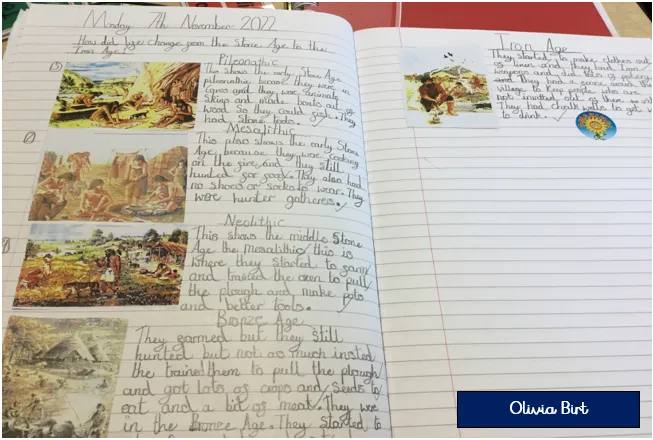 Monday 7th November 2022
How did life change from the Stone Age to the
Iron Age?
Pileonathic
This shows the early Stone Age
pileonathic because they were in
Caves and they wore animal
Skins and made boats out of
wood So they could fish. They
had Stone tools.
Mesalithic
This also shows the early Stone
Age because they were cooking
on the fire and they still
hunted for food. They also had
no shoes or socks to wear. They
were hunter gatherers.
Neolithic
This shows the middle Stone
Age the mesalithic this is
where they started to farm
and trained the oxen to pull
the plough and make pots
and better tools.
Bronze Age
They farmed but they still
hunted but not as much insted
the traind them to pull the plough
and got lots of crops and seeds to
eat and a bit of meat. They were
in the Bronze Age. They started to
Iron Age
They started to make clothes out
of linen and they had Iron
weapons and did lots of potery
and They had a fence around the
village to keep people who are
not invited out of there
They had chalk paths to get
to drink.
Olivia Birt